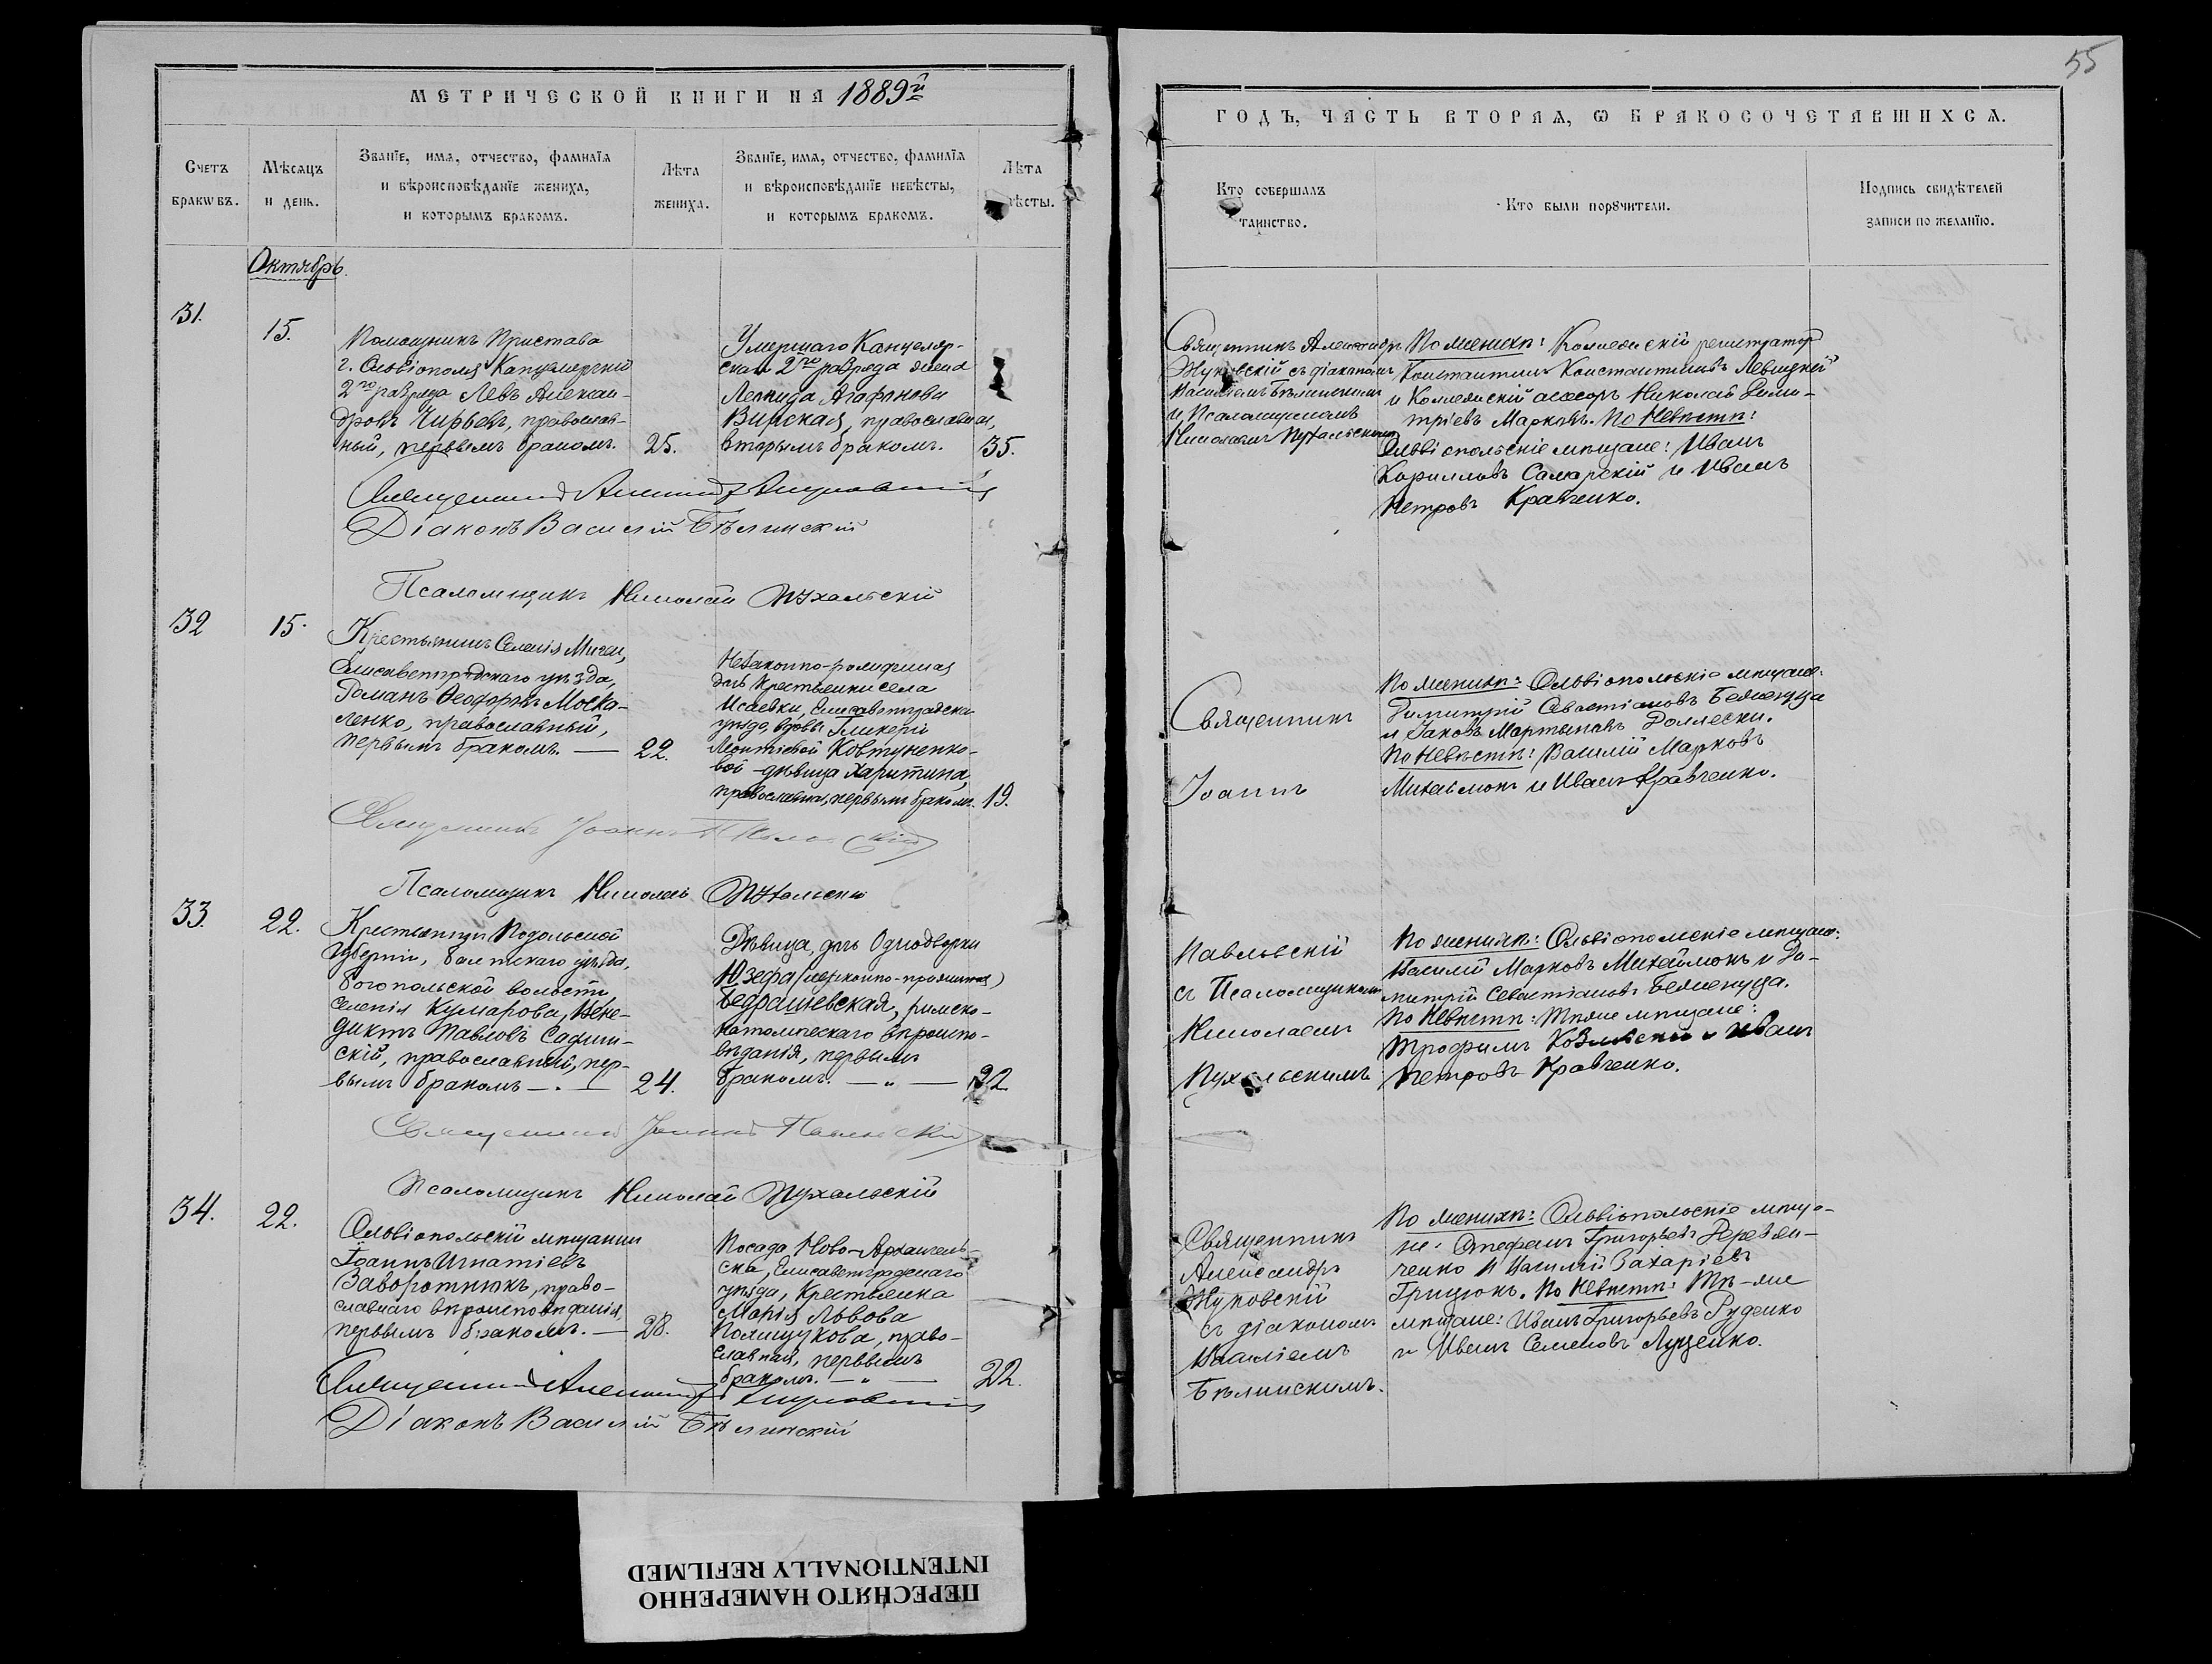 55
МЕТРИЧЕСКОЙ КНИГИ НА 1889й
Счетъ браковъ.
Мѣсяцъ и день.
Званїе, имѧ, отчество, фамилїѧ
и вѣроисповѣданїе жениха,
и которымъ бракомъ.
Лѣта жениха.
Званїе, имѧ, отчество, фамилїѧ
и вѣроисповѣданїе невѣсты,
и которымъ бракомъ.
Лѣта
ѣсты.
Октябрь.
31.
15.
Помощникъ Пристава
г. Ольвіополя Канцелярскій
2го разряда Левъ Алексан-
дровъ Чирьевъ, православ-
ный, первымъ бракомъ.
25.
Умершаго Канцеляр-
скаго 2го разряда жена
Леонида Агафонова
Вирская, православная,
вторымъ бракомъ.
35.
Священникъ Александръ Жуковскій
Діаконъ Василій Бѣлинскій
Псаломщикъ Николай Пухальскій
32
15.
Крестьянинъ Селенія Мигеи,
Елисаветградскаго уѣзда,
Романъ Ѳеодоровъ Моска-
ленко, православный,
первымъ бракомъ. —
22.
Незаконно-рожденная
дочь крестьянки села
Исаевки, Елисаветградска
уѣзда, вдовы Гликеріи
Леонтіевой Ковтуненко-
вой - дѣвица Харитина,
православная, первымъ бракомъ.
19.
Священникъ Іоаннъ Павловскій
Псаломщикъ Николай Пухальскій
33.
22.
Крестьянинъ Подольской
Губерніи, Балтскаго уѣзда,
Богопольской волости
селенія Кумарова, Вене-
диктъ Павловъ Садлин-
скій, православный, пер-
вымъ бракомъ —. —
24.
Дѣвица, дочь Однодворки
Юзефа (незаконно-прижитая)
Бедрашевская, римско-
католическаго вѣроиспо-
вѣданія, первымъ
бракомъ. — „ —
22
Священникъ Іоаннъ Павловскій
Псаломщикъ Николай Пухальскій
34.
22.
Ольвіопольскій мѣщанинъ
Іоаннъ Игнатіевъ
Заворотнюкъ, право-
славнаго вѣроисповѣданія,
первымъ бракомъ. —
28.
Посада Ново-Архангель-
ска, Елисаветградскаго
уѣзда, Крестьянка
Марія Львова
Полищукова, право-
славная, первымъ
бракомъ. — „ —
22.
Священникъ Александръ Жуковскій
Діаконъ Василій Бѣлинскій
ГОДЪ, ЧАСТЬ ВТОРАѦ, Ѡ БРАКОСОЧЕТАВШИХСѦ.
Кто совершалъ
таинство.
Кто были порȣчители.
Подпись свидѣтелей
записи по желанїю.
Священникъ Александръ
Жуковскій съ діакономъ
Василіемъ Бѣлинскимъ
и Псаломщикомъ
Николаемъ Пухальскимъ
По женихѣ: Коллежскій регистраторъ
Константинъ Константиновъ Левицкій
и Коллежскій асессоръ Николай Дими-
тріевъ Марковъ. По Невѣстѣ:
Ольвіопольскіе мѣщане: Иванъ
Кирилловъ Самарскій и Иванъ
Петровъ Кравченко.
Священникъ
Іоаннъ
По женихѣ: Ольвіопольскіе мѣщане:
Димитрій Севастіановъ Беженуца
и Іаковъ Мартыновъ
По Невѣстѣ: Василій Марковъ
Михайлюкъ и Иванъ Кравченко.
Павловскій
съ Псаломщикомъ
Николаемъ
Пухальскимъ
По женихѣ: Ольвіопольскіе мѣщане:
Василій Марковъ Михайлюкъ и Ди-
митрій Севастіановъ Беженуца.
По Невѣстѣ: Тѣже мѣщане:
Трофимъ Козлвскій и Иванъ
Петровъ Кравченко.
Священникъ
Александръ
Жуковскій
съ діакономъ
Василіемъ
Бѣлинскимъ.
По женихѣ: Ольвіопольскіе мѣща-
не: Стефанъ Григорьевъ Деревян-
ченко и Василій Захаріевъ
Грицюкъ. По Невѣстѣ: Тѣ-же
мѣщане: Иванъ Григорьевъ Руденко
и Иванъ Семеновъ Луценко.
ПЕРЕСНЯТО НАМЕРЕННО
INTENTIONALLY REFILMED